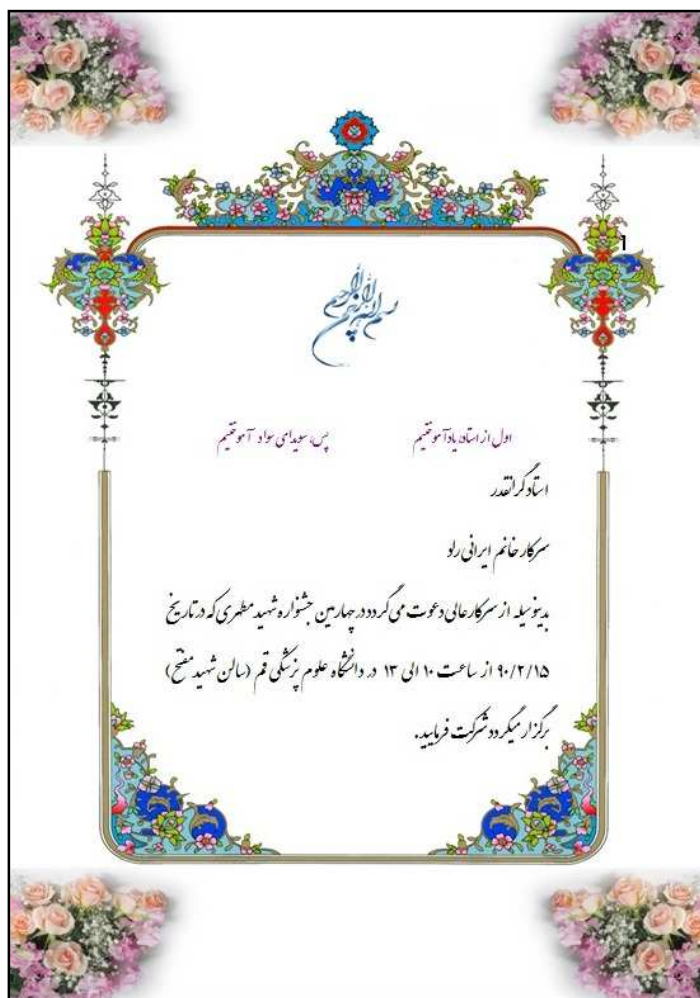 1
بسم الله الرحمن الرحیم
اول از استاد، یاد آموختیم پس، سویدای سواد آموختیم
استاد گرانقدر
سرکار خانم ایرانی راد
بدینوسیله از سرکارعالی دعوت می گردد در چهارمین جشنواره شهید مطهری که در تاریخ
۹۰/۲/۱۵ از ساعت ۱۰ الی ۱۳ در دانشگاه علوم پزشکی قم (سالن شهید مفتح)
برگزار میگردد شرکت فرمایید.